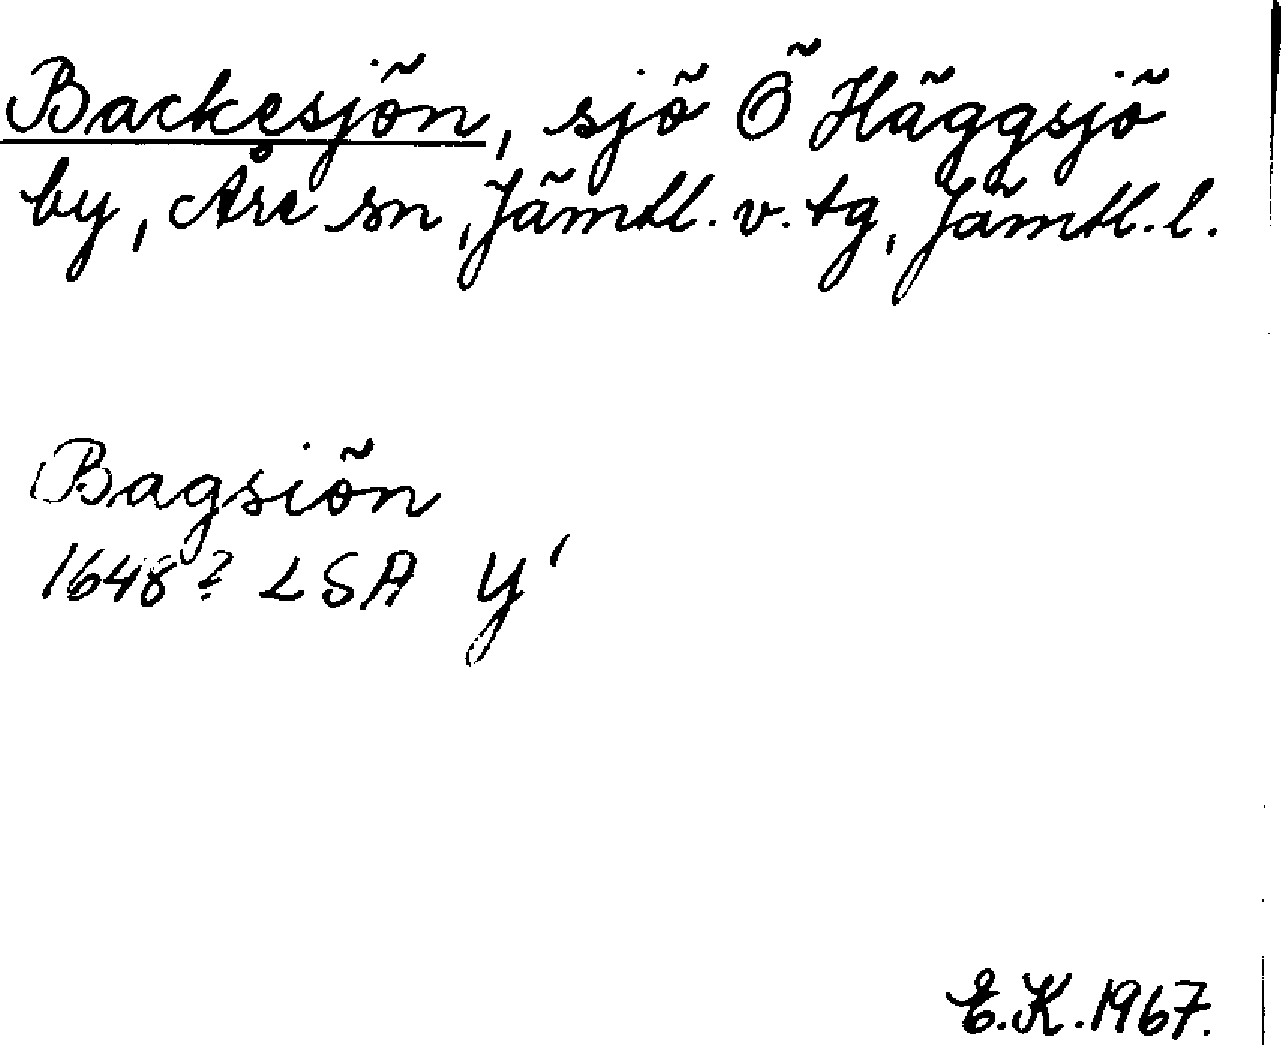 Backesjön, sjö Ö Häggsjö
by, Åre sn, Jämtl. v. tg, Jämtl. l.
Bagsiön
1648? LSA Y'
E.K. 1967.